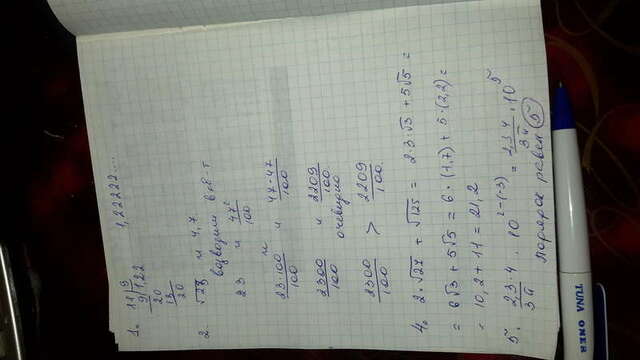 1. 11 | 9 1,22222...
9 | 1,22
20
18
20
2. √23 и 4,7
возводим в кв-т
23 и 47²/100
23·100/100 и 47·47/100
2300/100 и 2209/100
очевидно
2300/100 > 2209/100
4. 2·√27 + √125 = 2·3·√3 + 5√5 =
= 6√3 + 5√5 = 6·(1,7) + 5·(2,2) =
= 10,2 + 11 = 21,2
5. · 10²⁻⁽⁻³⁾ = · 10⁵
порядок равен 5
TUNA ONER